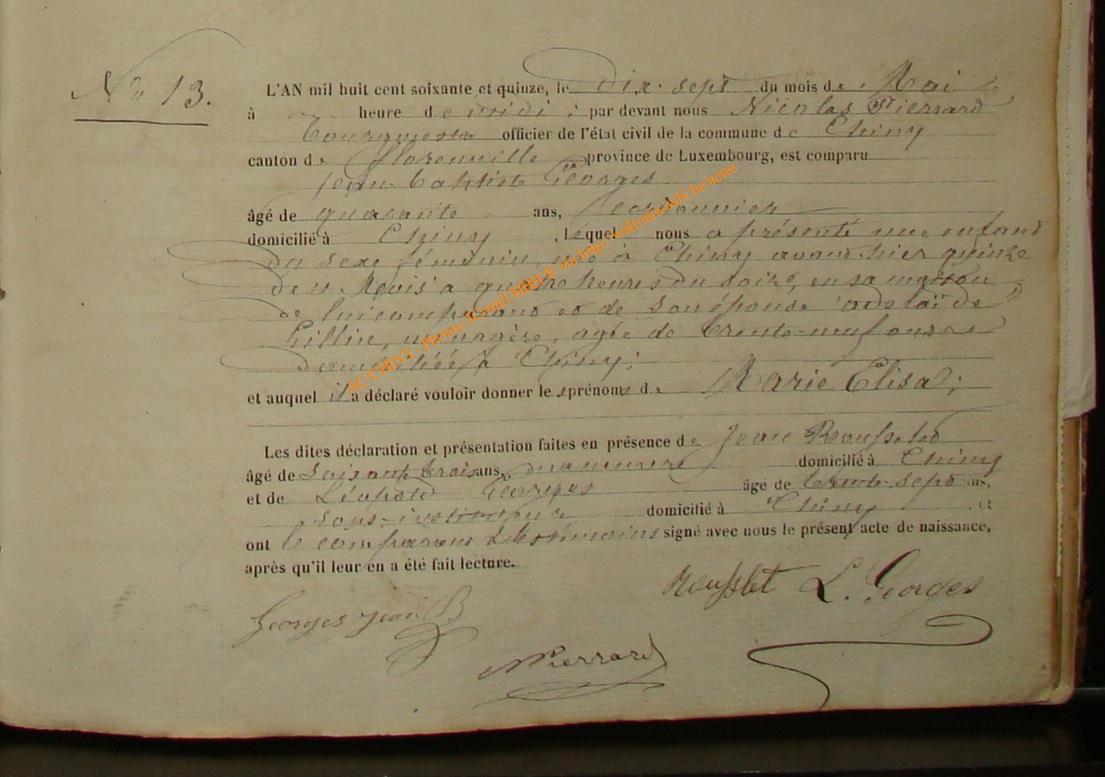 N° 13.
L'AN mil huit cent soixante et quinze, le dix-sept du mois de Mai
à heure de midi ; par devant nous Nicolas Pierrard
bourgmestre officier de l'état civil de la commune de Chiny
canton de Florenville province de Luxembourg, est comparu
Jean Baptiste Georges
âgé de quarante ans, cordonnier
domicilié à Chiny , lequel nous a présenté une enfant
du sexe féminin, née à Chiny avant hier quinze
de ce Mois à quatre heures du soir, en sa maison
de lui comparant et de son épouse adelaïde
Gillin, ménagère, agée de trente-neuf ans
domiciliée à Chiny;
et auquel il a déclaré vouloir donner les prénoms de Marie Elisa;
Les dites déclaration et présentation faites en présence de Jean
âgé de soixante trois ans, domicilié à Chiny
et de Léopold Georges âgé de trente-sept ans,
sous-instituteur domicilié à Chiny et
ont le comparant témoins signé avec nous le présent acte de naissance,
après qu'il leur en a été fait lecture.
L. Georges
Georges Jean B
NPierrard